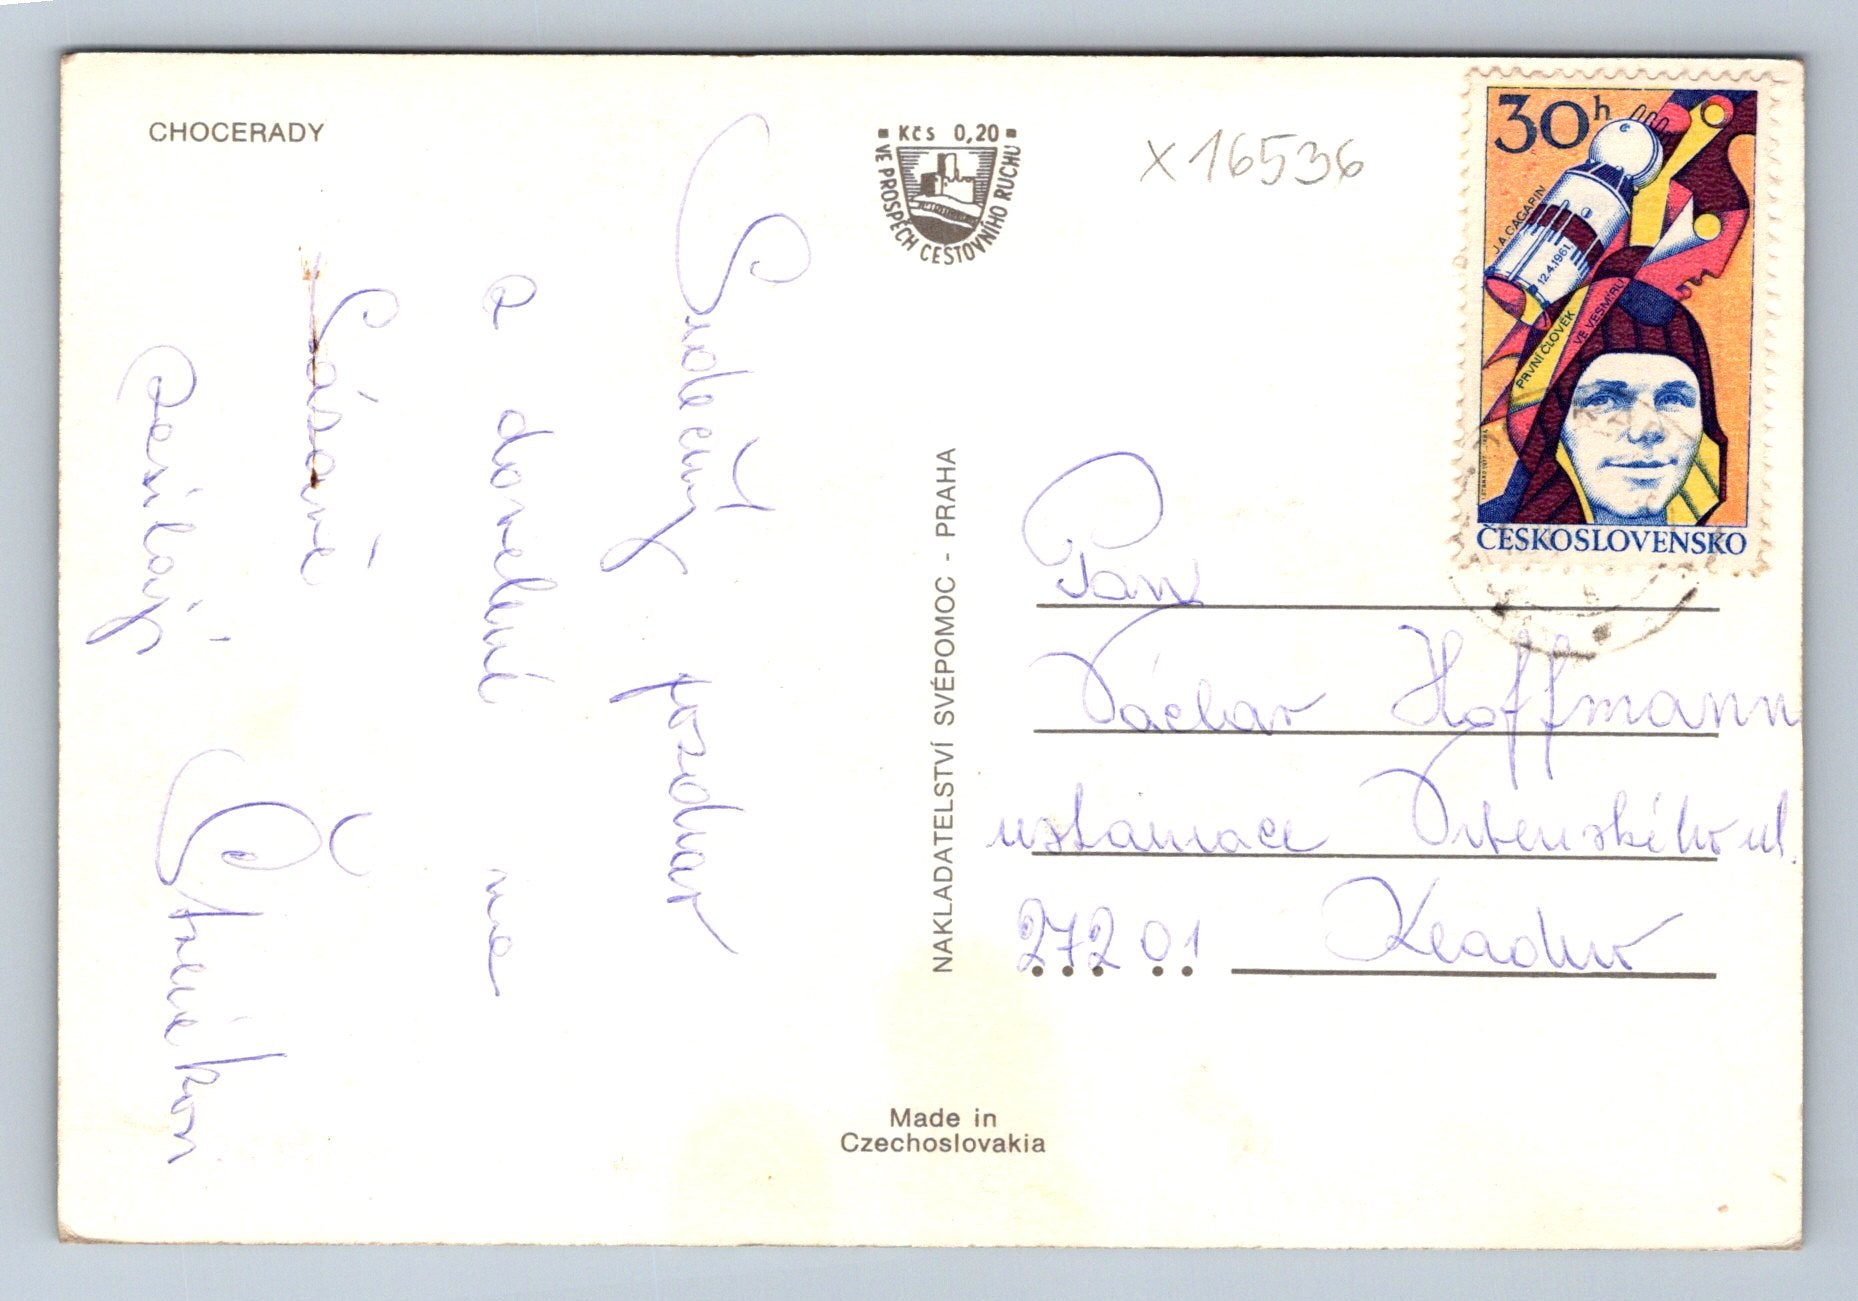 CHOCERADY
Kčs 0,20
VE PROSPĚCH CESTOVNÍHO RUCHU
x 16536
30h
J.A.GAGARIN
12.4.1961
PRVNÍ ČLOVĚK
VE VESMÍRU
ČESKOSLOVENSKO
Srdečný pozdrav
a dovolené na
Sázavě
posílají
NAKLADATELSTVÍ SVÉPOMOC - PRAHA
Pan
Václav Hoffmann
ul.
272 01 Kladno
Made in
Czechoslovakia